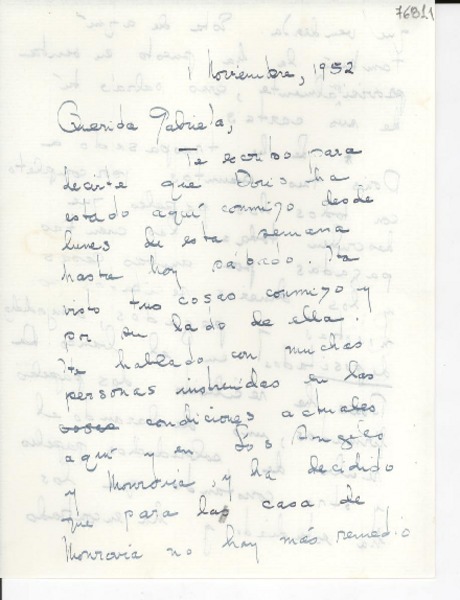 76911
1 Novembre, 1952
Querida Gabriela,
Te escribo para
decirte que Doris ha
estado aquí conmigo desde
lunes de esta semana
hasta hoy sábado. Ha
visto tus cosas conmigo y
por su lado de ella.
He hablado con muchas
personas instruidas en las
condiciones actuales
aquí y en Los Angeles
y Monrovia, y ha decidido
que para la casa de
Monrovia no hay más remedio